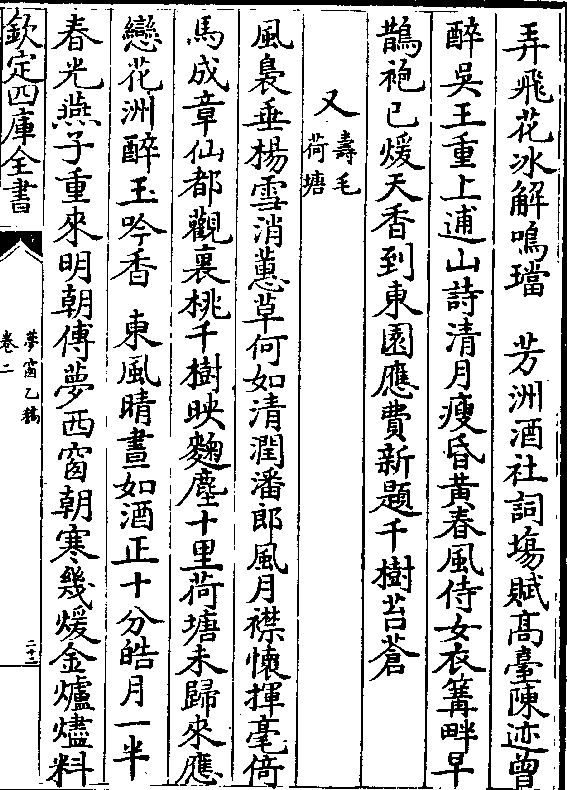 弄飛花冰解鳴璫　芳洲酒社詞塲賦髙臺陳迹曾
醉吳王重上逋山詩清月瘦昏黃春風侍女衣篝畔早
鵲袍已煖天香到東園應費新題千樹苔蒼
又壽毛
荷塘
風裊垂楊雪消蕙草何如清潤潘郎風月襟懷揮毫倚
馬成章仙都觀裏桃千樹映麴塵十里荷塘未歸來應
戀花洲醉玉吟香　東風晴晝如酒正十分皓月一半
春光燕子重來明朝傳夢西窗朝寒幾煖金爐燼料
欽定四庫全書
夢窗乙稿
卷二
二十二